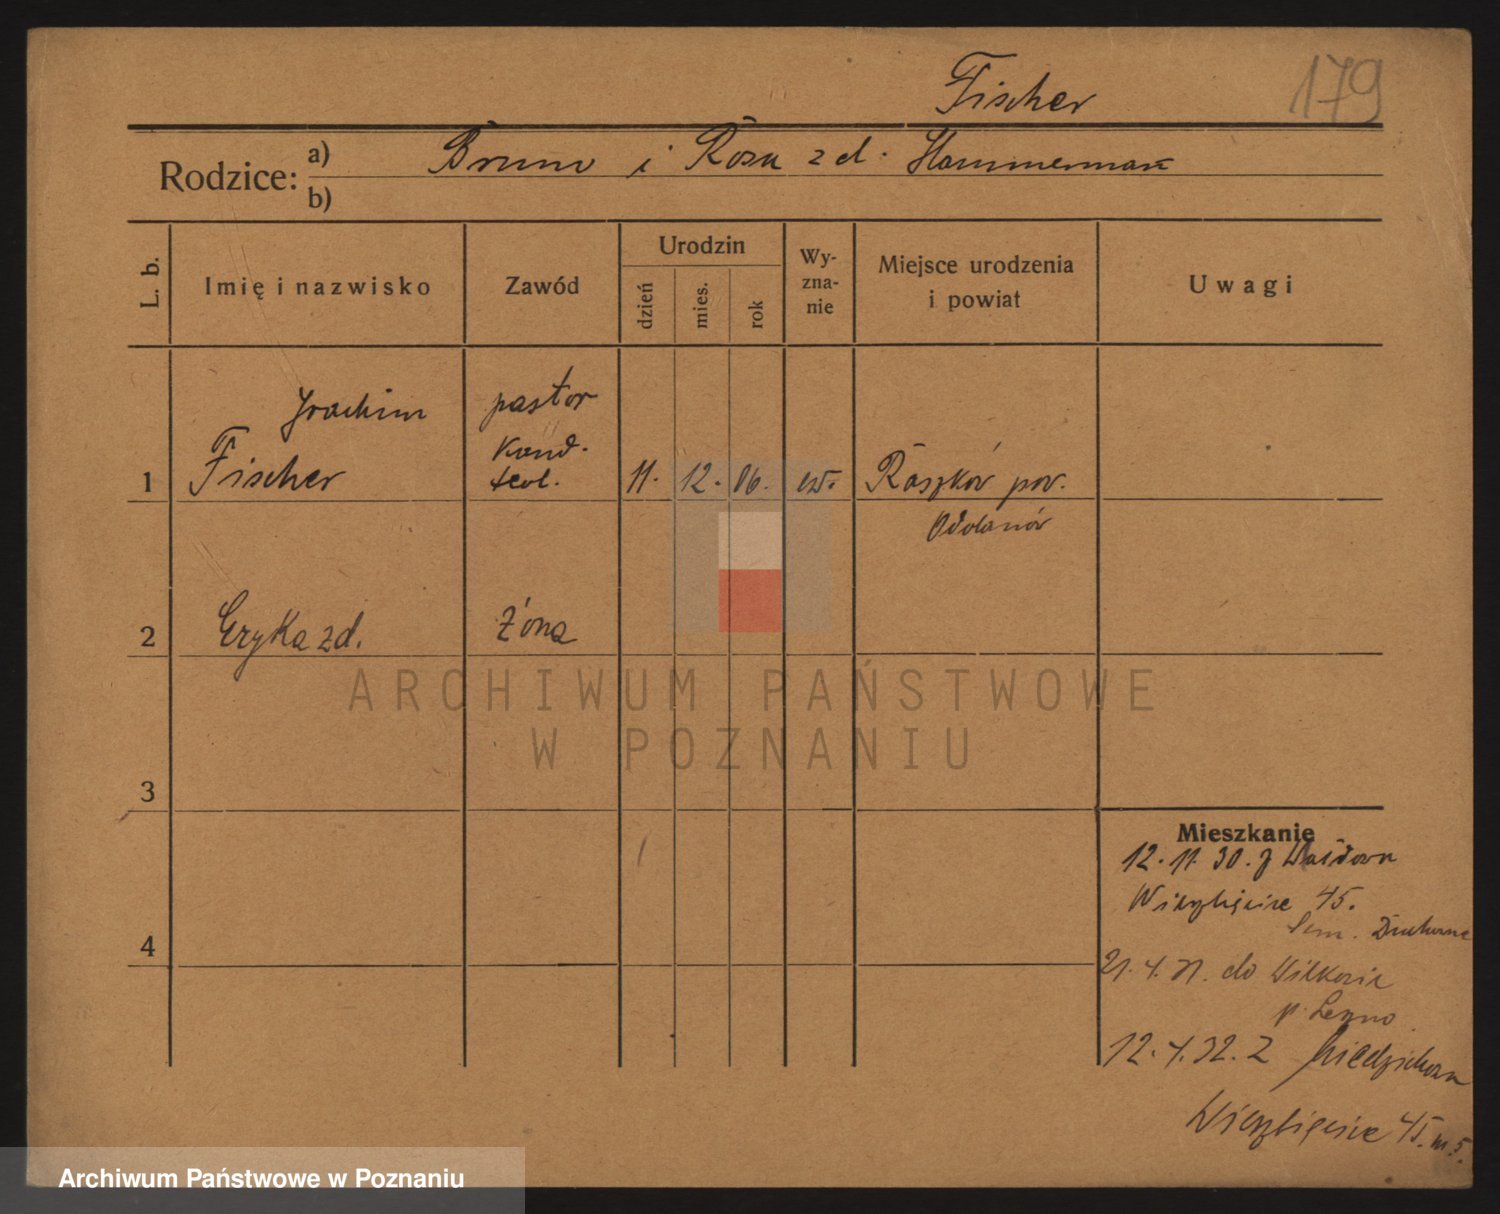 Fischer 179
Rodzice: a) Bruno i Roza z d. Hammermann
b)
L. b. Imię i nazwisko Zawód Urodzin dzień mies. rok Wyznanie Miejsce urodzenia i powiat Uwagi
Joachim pastor
kand.
1 Fischer teol. 11. 12. 06. ew. Raszków pow.
Odolanów
2 Eryka z d. żona
ARCHIWUM PAŃSTWOWE
W POZNANIU
3
Mieszkanie
12. 11. 30. z
Wierzbięcice 45.
4 Sem. Duchowne
21. 4. 31. do
p. Leszno
12. 4. 32. z
Wierzbięcice 45. m 5.
Archiwum Państwowe w Poznaniu